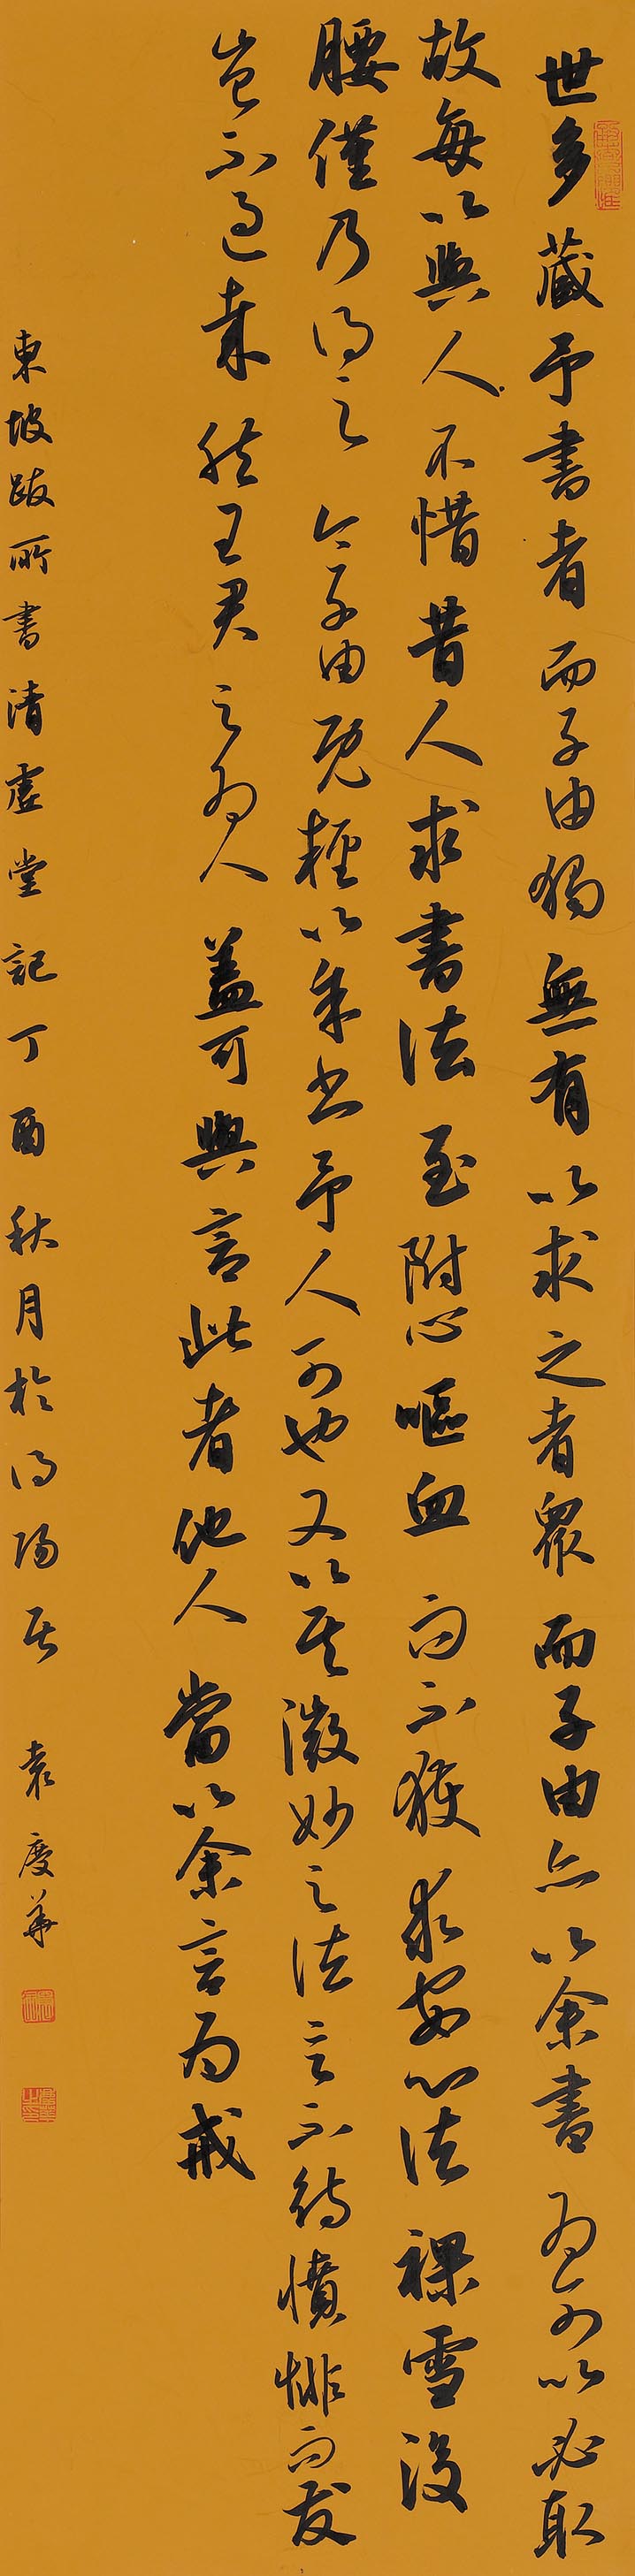 世多藏予書者而子由獨無有以求之者眾而子由亦以余書為可以必取
故每以與人不惜昔人求書法至拊心嘔血而不獲求安心法裸雪沒
腰僅乃得之今子由既輕以余書予人可也又以其微妙之法言不待憤悱而發
豈不過哉然王君之為人蓋可與言此者他人當以余言為戒
東坡跋所書清虛堂記丁酉秋月於得陽居袁慶華